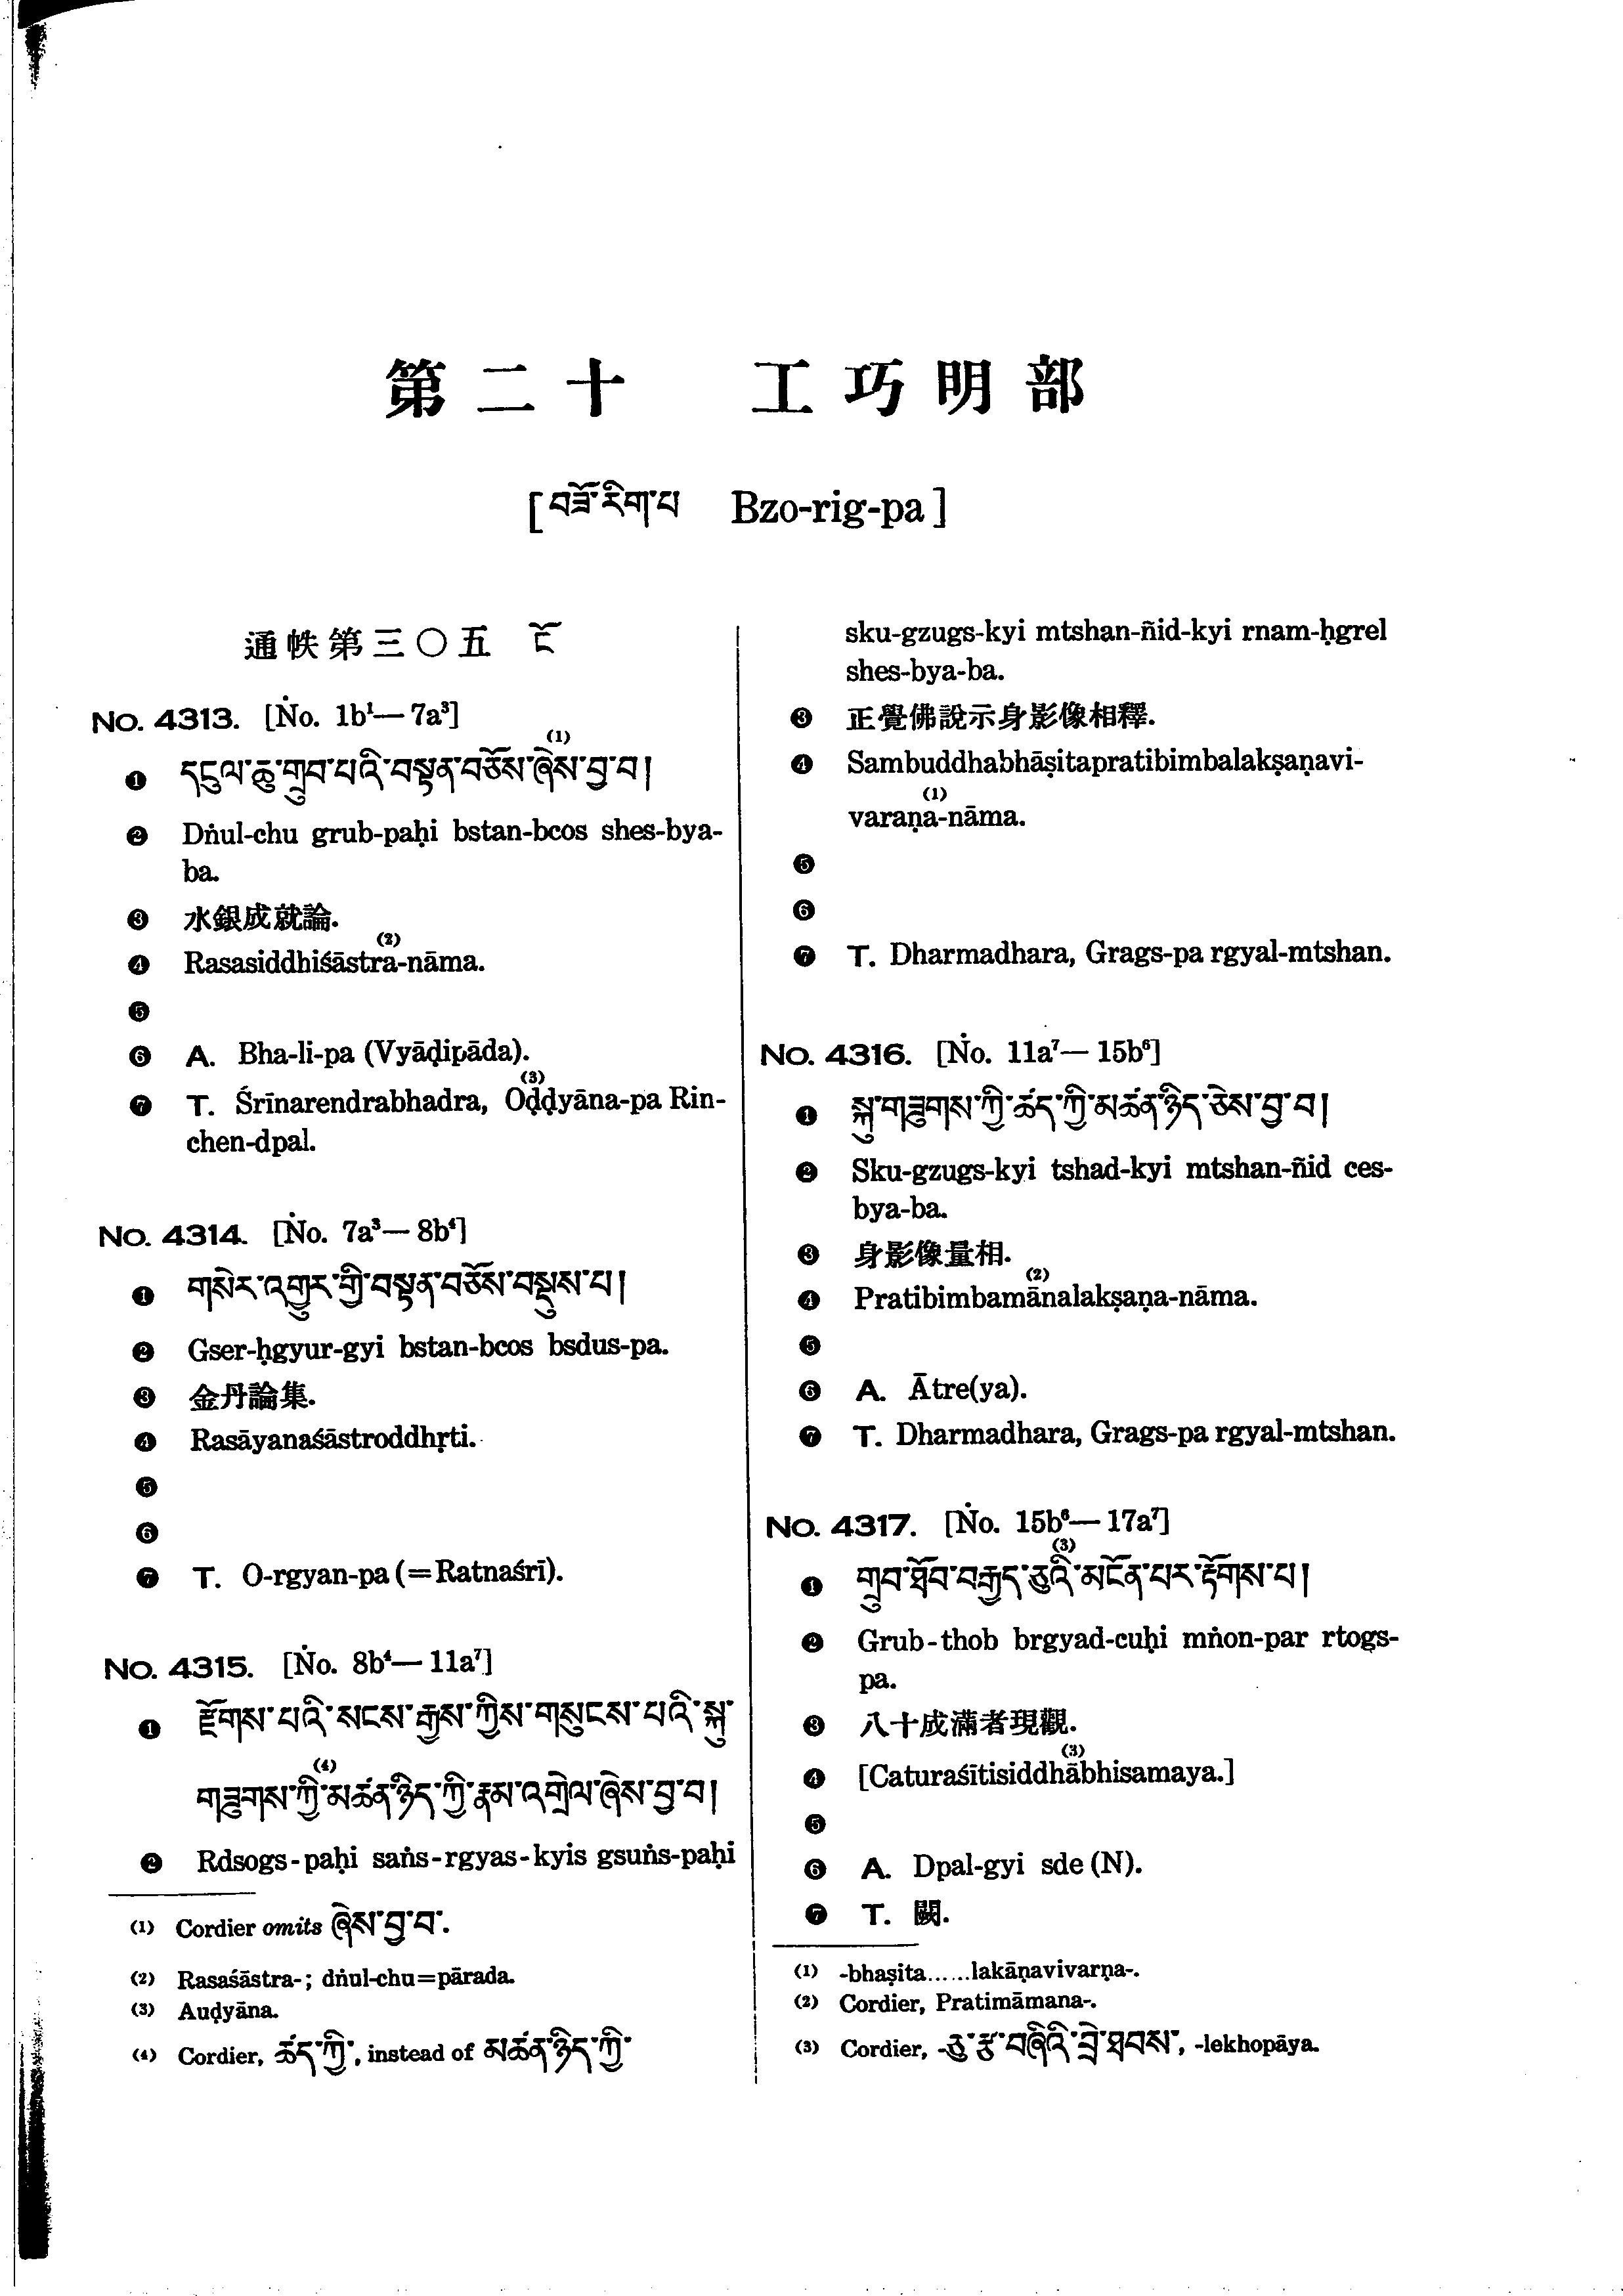 第二十　工巧明部
[ བཟོ་རིག་པ Bzo-rig-pa ]
通帙第三〇五 ངོ
No. 4313. [Ṅo. 1b¹—7a³]
(1)
❶ དངུལ་ཆུ་གྲུབ་པའི་བསྟན་བཅོས་ཞེས་བྱ་བ།
❷ Dṅul-chu grub-paḥi bstan-bcos shes-bya-
ba.
❸ 水銀成就論.
(2)
❹ Rasasiddhiśāstra-nāma.
❺
❻ A. Bha-li-pa (Vyāḍipāda).
(3)
❼ T. Śrīnarendrabhadra, Oḍḍyāna-pa Rin-
chen-dpal.
No. 4314. [Ṅo. 7a³—8b⁴]
❶ གསེར་འགྱུར་གྱི་བསྟན་བཅོས་བསྡུས་པ།
❷ Gser-ḥgyur-gyi bstan-bcos bsdus-pa.
❸ 金丹論集.
❹ Rasāyanaśāstroddhṛti.
❺
❻
❼ T. O-rgyan-pa (=Ratnaśrī).
No. 4315. [Ṅo. 8b⁴—11a⁷]
❶ རྫོགས་པའི་སངས་རྒྱས་ཀྱིས་གསུངས་པའི་སྐུ་
(4)
གཟུགས་ཀྱི་མཚན་ཉིད་ཀྱི་རྣམ་འགྲེལ་ཞེས་བྱ་བ།
❷ Rdsogs-paḥi saṅs-rgyas-kyis gsuṅs-paḥi
(1) Cordier omits ཞེས་བྱ་བ་.
(2) Rasaśāstra-; dṅul-chu=pārada.
(3) Auḍyāna.
(4) Cordier, ཚད་ཀྱི་, instead of མཚན་ཉིད་ཀྱི་
sku-gzugs-kyi mtshan-ñid-kyi rnam-ḥgrel
shes-bya-ba.
❸ 正覺佛說示身影像相釋.
❹ Sambuddhabhāṣitapratibimbalakṣaṇavi-
(1)
varaṇa-nāma.
❺
❻
❼ T. Dharmadhara, Grags-pa rgyal-mtshan.
No. 4316. [Ṅo. 11a⁷—15b⁶]
❶ སྐུ་གཟུགས་ཀྱི་ཚད་ཀྱི་མཚན་ཉིད་ཅེས་བྱ་བ།
❷ Sku-gzugs-kyi tshad-kyi mtshan-ñid ces-
bya-ba.
❸ 身影像量相.
(2)
❹ Pratibimbamānalakṣaṇa-nāma.
❺
❻ A. Ātre(ya).
❼ T. Dharmadhara, Grags-pa rgyal-mtshan.
No. 4317. [Ṅo. 15b⁶—17a⁷]
(3)
❶ གྲུབ་ཐོབ་བརྒྱད་ཅུའི་མངོན་པར་རྟོགས་པ།
❷ Grub-thob brgyad-cuḥi mṅon-par rtogs-
pa.
❸ 八十成滿者現觀.
(3)
❹ [Caturaśītisiddhābhisamaya.]
❺
❻ A. Dpal-gyi sde (N).
❼ T. 闕.
(1) -bhaṣita......lakāṇavivarṇa-.
(2) Cordier, Pratimāmana-.
(3) Cordier, -ཅུ་རྩ་བཞིའི་བྲི་ཐབས་, -lekhopāya.